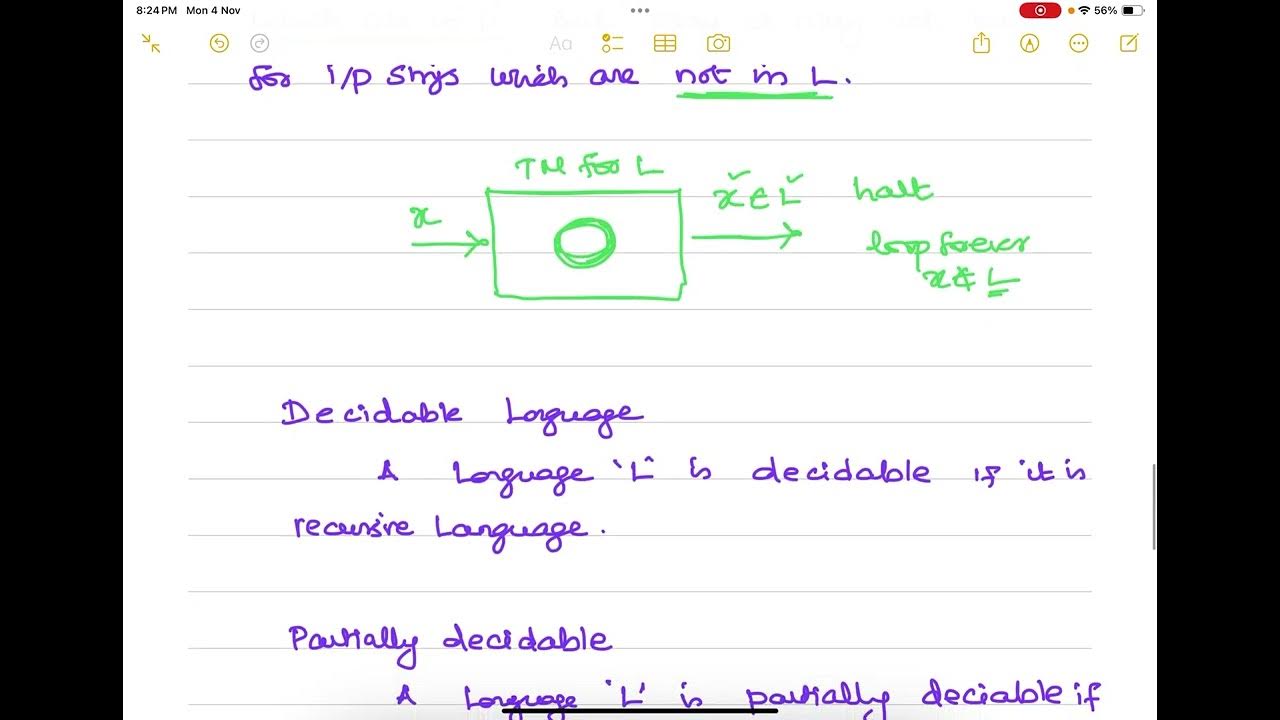 8:24 PM Mon 4 Nov
56%
Aa
for i/p strings which are not in L.
TM for L
x
x ∈ L halt
loop forever
x ∉ L
Decidable Language
A Language 'L' is decidable if it is
recursive Language.
Partially decidable
A Language 'L' is partially deciable if